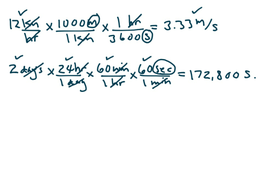 12 km/hr × 1000 m/1 km × 1 hr/3600 s = 3.33 m/s
2 days × 24 hr/1 day × 60 min/1 hr × 60 sec/1 min = 172,800 s.